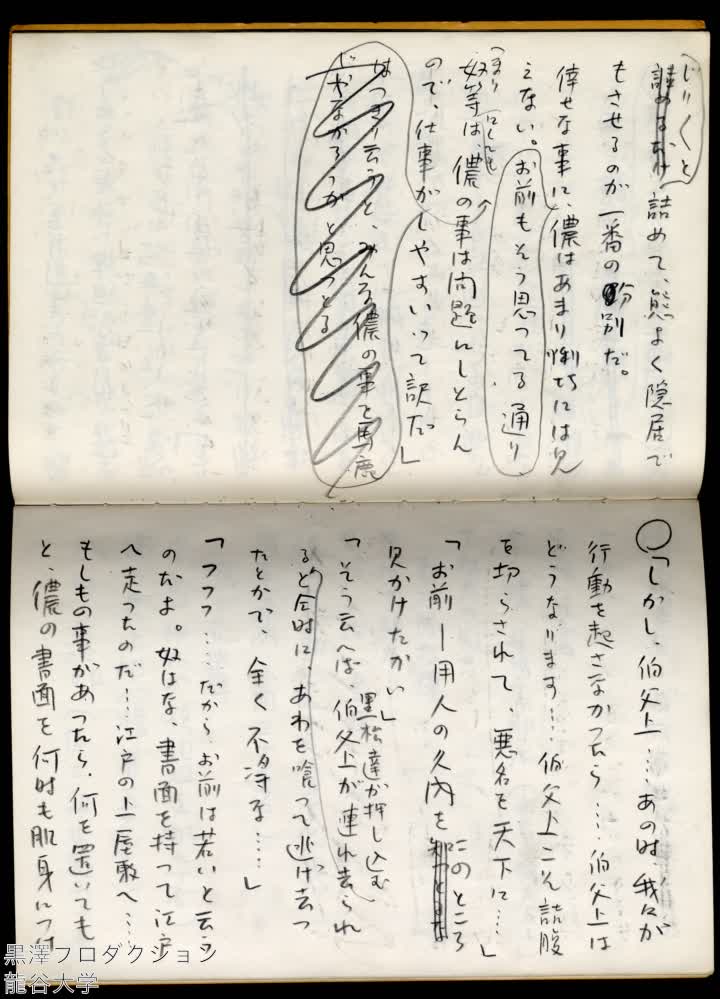 じりくと
詰めるだけ詰めて、態よく隠居で
もさせるのが一番の分別だ。
倖せな事に、儂はあまり悧巧には見
えない。お前もそう思ってる通り、
つまり
奴等は、儂の事は問題にしとらん
ので、仕事がしやすいって訳だ」
はっきり云うと、みんな儂の事を馬鹿
じゃなかろうかと思っとる
「しかし、伯父上……あの時 我々が
行動を起さなかったら……伯父上は
どうなります……伯父上こそ詰腹
を切らされて、悪名を天下に…」
「お前ー用人の久内を このところ
見かけたかい」
黒松達が押し込む
「そう云へば、伯父上が連れ去られ
ると同時に、あわを喰って逃げ去っ
たとかで、全く不埒な……」
「フフフ……だから お前は若いと云う
のだよ。奴はな、書面を持って江戸
へ走ったのだ…江戸の上屋敷へ…
もしもの事があったら、何を置いても
と、儂の書面を何時も肌身につけ
黒澤プロダクション
龍谷大学